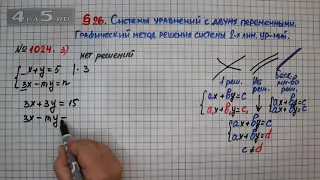 §26. Системы уравнений с двумя переменными.
Графический метод решения системы 2-х лин. ур-ний.
№ 1024. 3)
нет решений
x+y=5 | · 3
3x-my=n
3x+3y=15
3x-my=
1 реш.
Нет реш.
беск. мн-во реш.
ax+by=c
a₁x+b₁y=c₁
ax+by=c
ax+by=d
c≠d
ax+by=c
ax+by=c